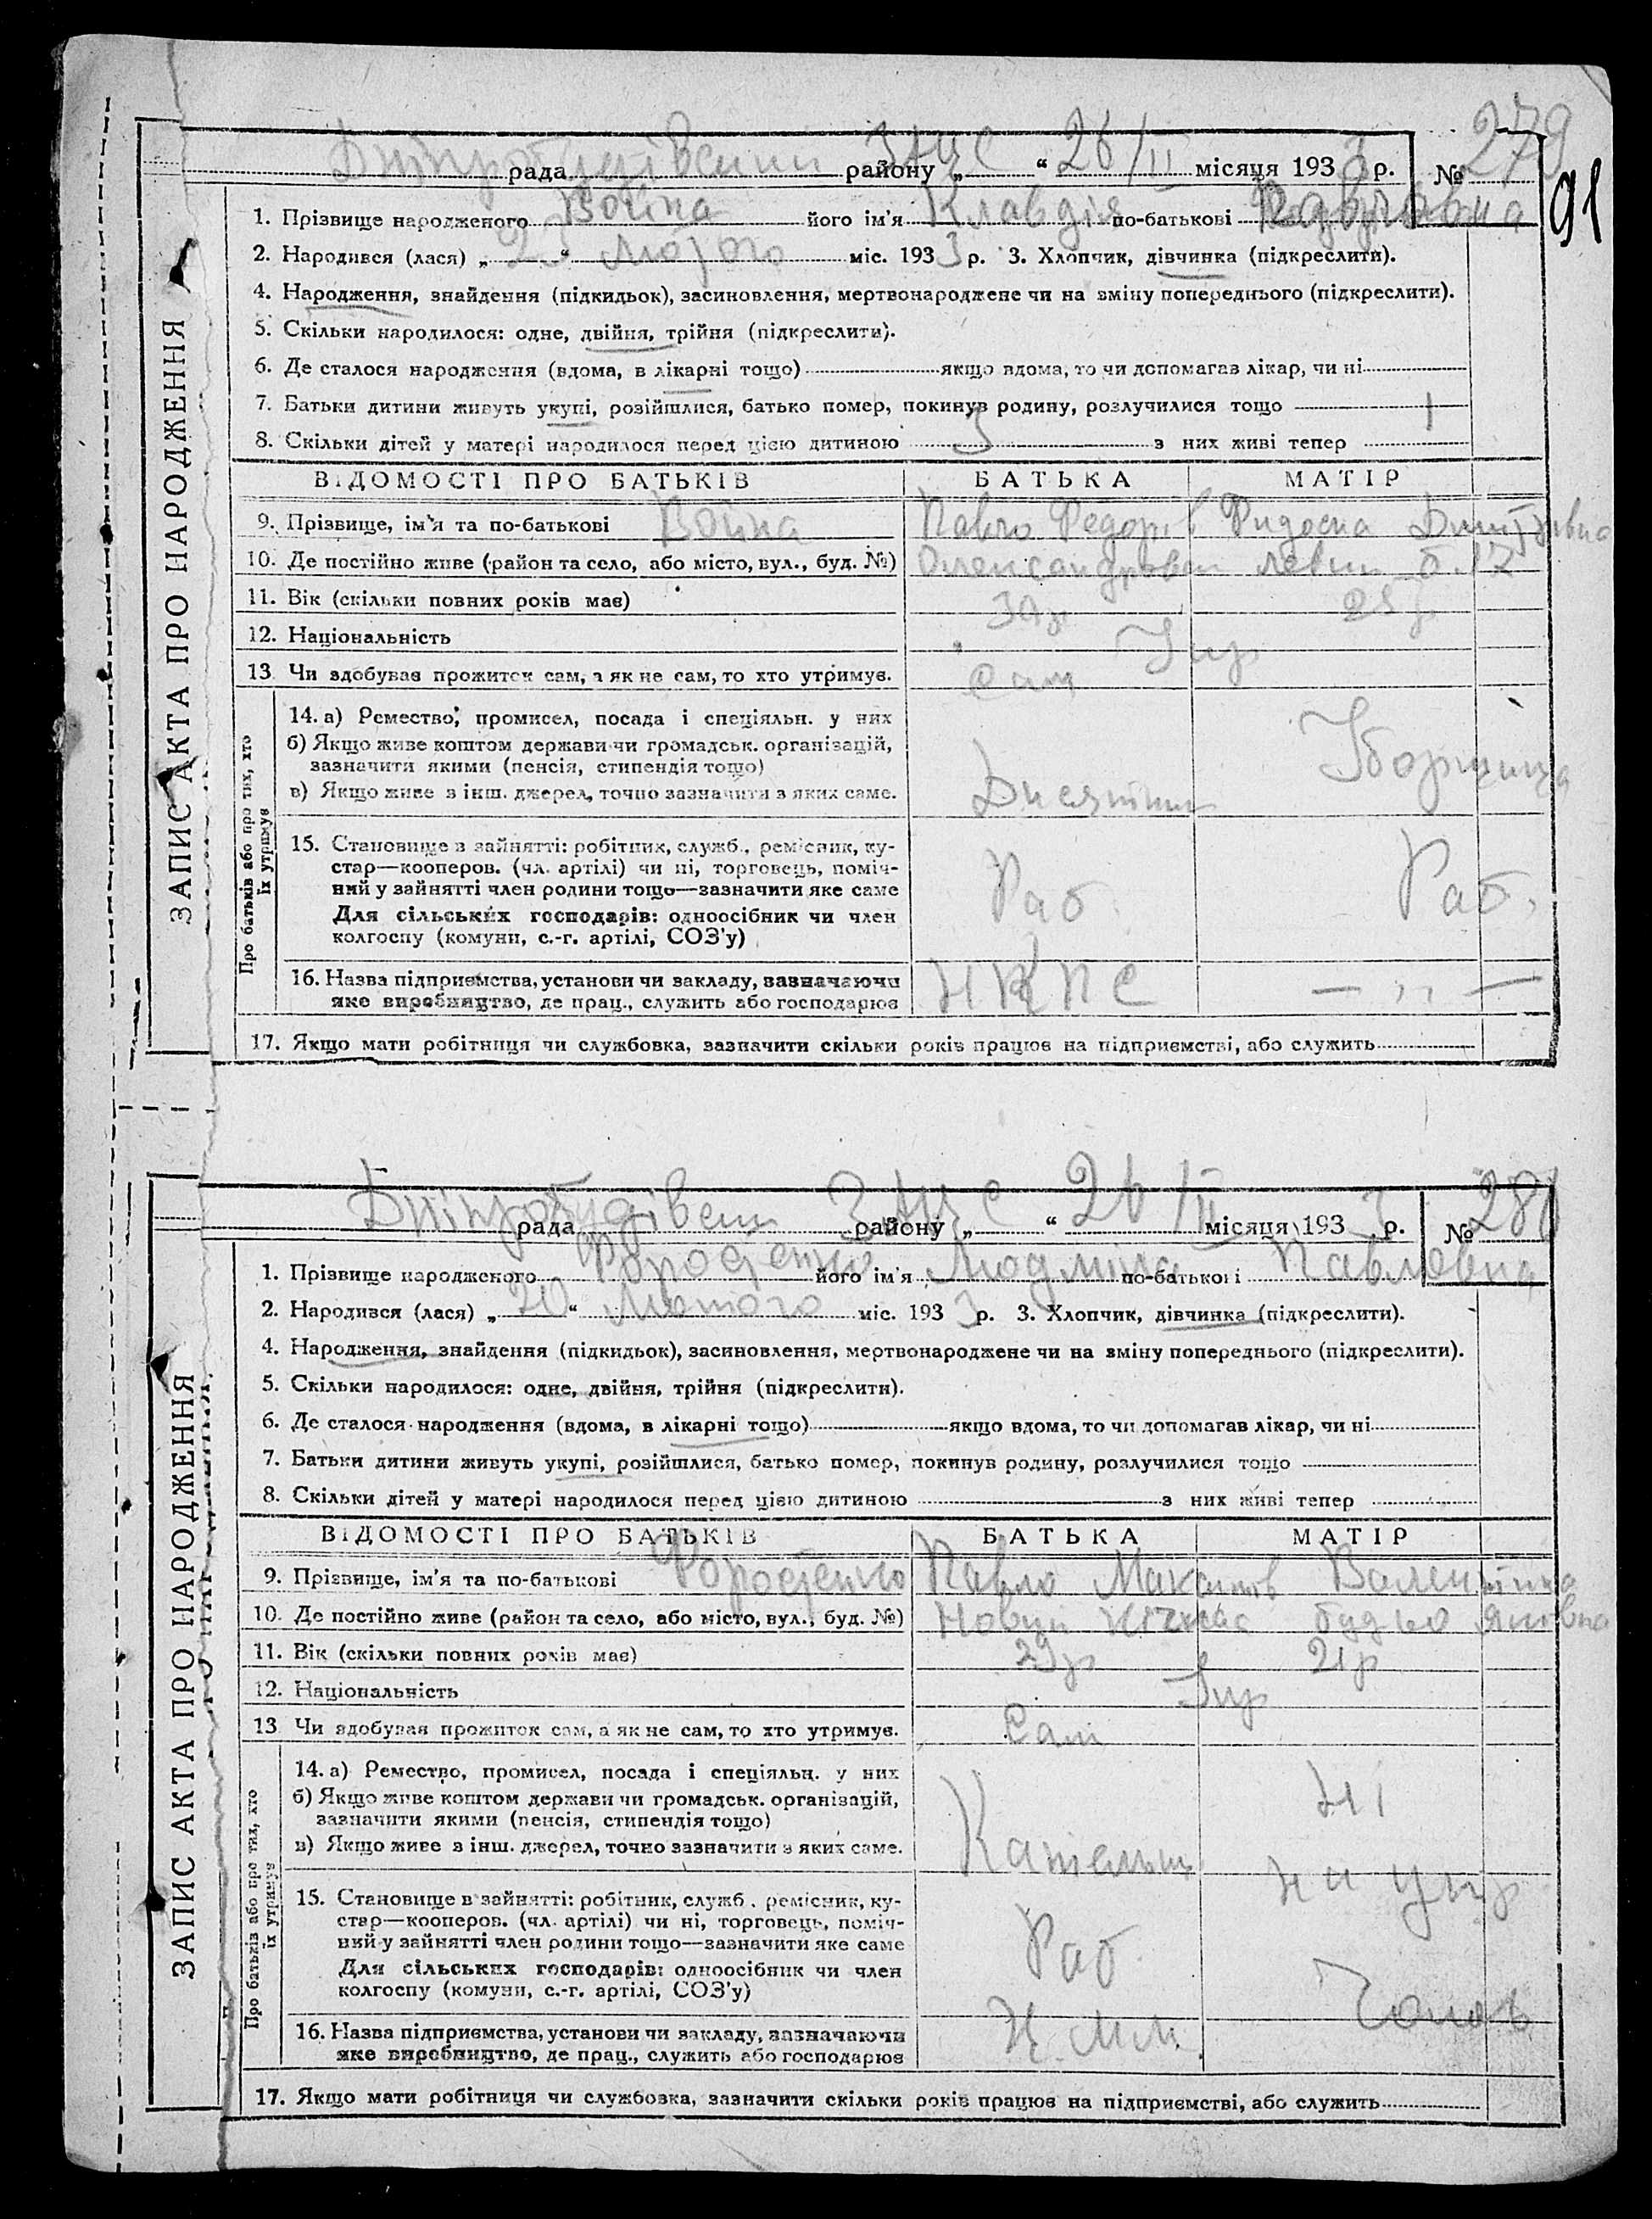 279
91
Дніпробудівський рада ЗАЦС району „ “ 26/II місяця 1933 р. №
1. Прізвище народженого Война його ім'я Клавдія по-батькові
2. Народився (лася) „ “ міс. 1933 р. 3. Хлопчик, дівчинка (підкреслити).
4. Народження, знайдення (підкидьок), засиновлення, мертвонароджене чи на зміну попереднього (підкреслити).
5. Скільки народилося: одне, двійня, трійня (підкреслити).
6. Де сталося народження (вдома, в лікарні тощо) якщо вдома, то чи допомагав лікар, чи ні
7. Батьки дитини живуть укупі, розійшлися, батько помер, покинув родину, розлучилися тощо
8. Скільки дітей у матері народилося перед цією дитиною 3 з них живі тепер 1
ВІДОМОСТІ ПРО БАТЬКІВ БАТЬКА МАТІР
9. Прізвище, ім'я та по-батькові Война Павло Федорів Дмитрівна
10. Де постійно живе (район та село, або місто, вул., буд. №) б. 17
11. Вік (скільки повних років має)
12. Національність Укр
13. Чи здобував прожиток сам, а як не сам, то хто утримує. Сам
Про батьків або про тих, хто їх утримує
14. а) Ремество, промисел, посада і спеціяльн. у них
б) Якщо живе коштом держави чи громадськ. організацій,
зазначити якими (пенсія, стипендія тощо)
в) Якщо живе з інш. джерел, точно зазначити з яких саме.
Десятник Уборщица
15. Становище в зайнятті: робітник, служб., ремісник, ку-
стар—кооперов. (чл. артілі) чи ні, торговець, поміч-
ний у зайнятті член родини тощо—зазначити яке саме
Раб. Раб.
Для сільських господарів: одноосібник чи член
колгоспу (комуни, с.-г. артілі, СОЗ'у)
16. Назва підприємства, установи чи закладу, зазначаючи
яке виробництво, де прац., служить або господарює
НКПС — „ —
17. Якщо мати робітниця чи службовка, зазначити скільки років працює на підприємстві, або служить
ЗАПИС АКТА ПРО НАРОДЖЕННЯ
Дніпробудівськ рада ЗАЦС району „ “ 26/II місяця 1933 р. №
1. Прізвище народженого його ім'я Людміла по-батькові Павловна
2. Народився (лася) „ 20 “ Лютого міс. 1933 р. 3. Хлопчик, дівчинка (підкреслити).
4. Народження, знайдення (підкидьок), засиновлення, мертвонароджене чи на зміну попереднього (підкреслити).
5. Скільки народилося: одне, двійня, трійня (підкреслити).
6. Де сталося народження (вдома, в лікарні тощо) якщо вдома, то чи допомагав лікар, чи ні
7. Батьки дитини живуть укупі, розійшлися, батько помер, покинув родину, розлучилися тощо
8. Скільки дітей у матері народилося перед цією дитиною з них живі тепер
ВІДОМОСТІ ПРО БАТЬКІВ БАТЬКА МАТІР
9. Прізвище, ім'я та по-батькові Павло Максимов Валентина
10. Де постійно живе (район та село, або місто, вул., буд. №) Яковна
11. Вік (скільки повних років має) 29р 21р
12. Національність Укр
13. Чи здобував прожиток сам, а як не сам, то хто утримує. Сам
Про батьків або про тих, хто їх утримує
14. а) Ремество, промисел, посада і спеціяльн. у них
б) Якщо живе коштом держави чи громадськ. організацій,
зазначити якими (пенсія, стипендія тощо)
в) Якщо живе з інш. джерел, точно зазначити з яких саме.
15. Становище в зайнятті: робітник, служб., ремісник, ку-
стар—кооперов. (чл. артілі) чи ні, торговець, поміч-
ний у зайнятті член родини тощо—зазначити яке саме
Раб
Для сільських господарів: одноосібник чи член
колгоспу (комуни, с.-г. артілі, СОЗ'у)
16. Назва підприємства, установи чи закладу, зазначаючи
яке виробництво, де прац., служить або господарює
17. Якщо мати робітниця чи службовка, зазначити скільки років працює на підприємстві, або служить
ЗАПИС АКТА ПРО НАРОДЖЕННЯ